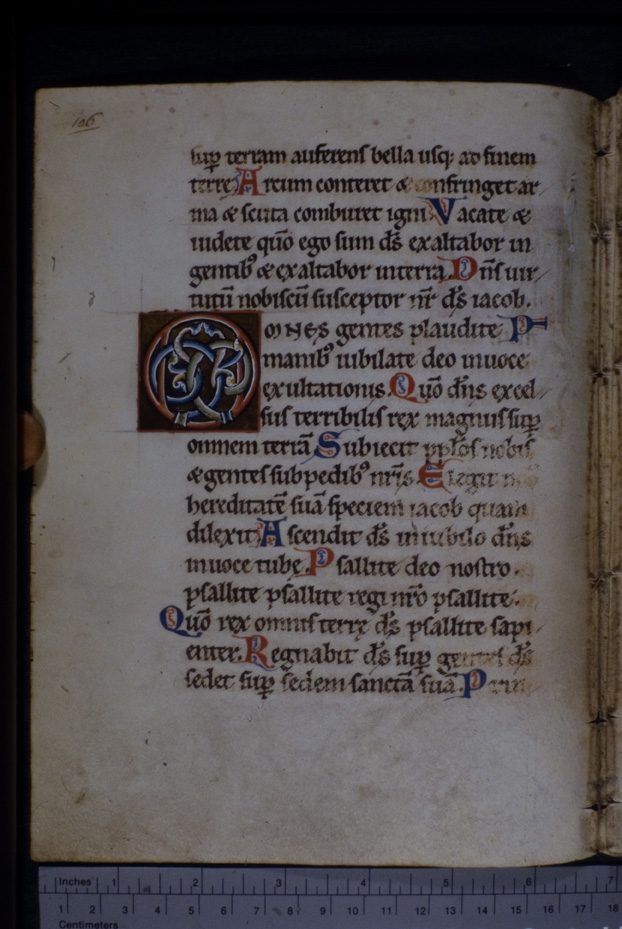 106
sup terram auferens bella usq; ad finem
terrę Arcum conteret & confringet ar
ma & scuta comburet igni Vacate &
uidete qūo ego sum ds̄ exaltabor in
gentib⁹ & exaltabor interra. Dn̄s uir
tutū nobiscū susceptor nr̄ ds̄ iacob.
OMNES gentes plaudite
manib⁹ iubilate deo inuoce
exultationis. Quō dn̄s excel
sus terribilis rex magnus sup
omnem terrā Subiecit pplos nobis
& gentes subpedib⁹ nr̄is Elegit
hereditatē suā speciem iacob quam
dilexit Ascendit ds̄ iniubilo dn̄s
inuoce tubę. Psallite deo nostro.
psallite psallite regi nr̄o psallite.
Quō rex omnis terrę ds̄ psallite sapi
enter. Regnabit ds̄ sup gentes ds̄
sedet sup sedem sanctā suā. Prin
Inches 1 2 3 4 5 6 7
1 2 3 4 5 6 7 8 9 10 11 12 13 14 15 16 17 18
Centimeters